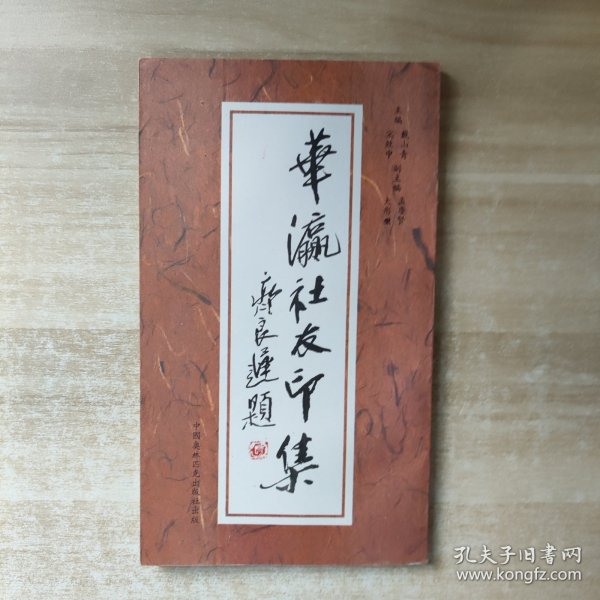 華瀛社友印集
齊良遲題
主編 戴山青
副主編 孟慶賢
中國奧林匹克出版社出版
孔夫子旧书网
www.kongfz.com